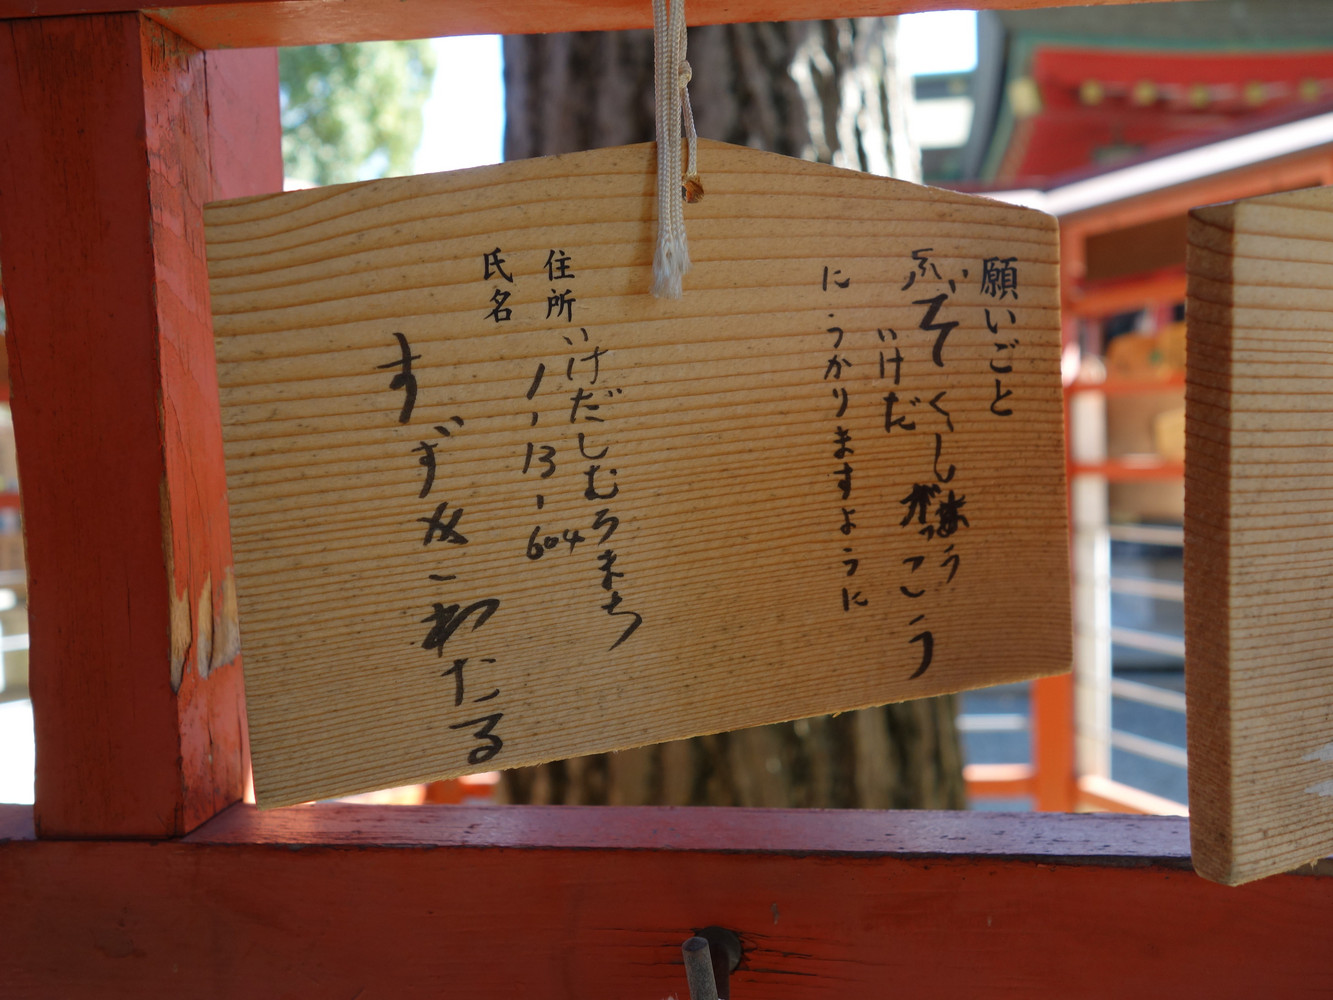 願いごと
ふぞくしょう
いけだがっこう
にうかりますように
住所
いけだしむろまち
1-13-604
氏名
すずきわたる